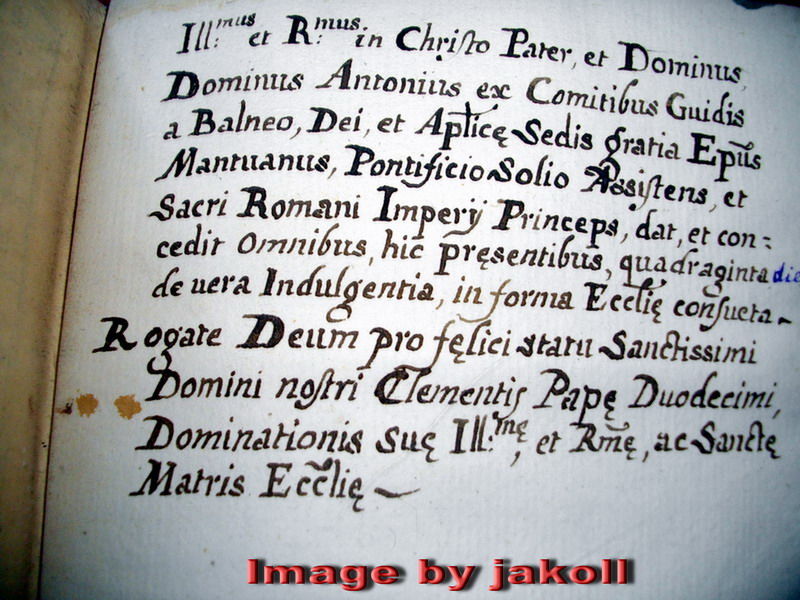 Ill:mus et R:mus in Christo Pater, et Dominus,
Dominus Antonius ex Comitibus Guidis
a Balneo, Dei, et Aplicę Sedis gratia Epūs
Mantuanus, Pontificio Solio Assistens, et
Sacri Romani Imperij Princeps, dat, et con:
cedit omnibus, hic pręsentibus, quadraginta die
de uera Indulgentia, in forma Eccl̄ię consueta
Rogate Deum pro fęlici statu Sanctissimi
Domini nostri Clementis Papę Duodecimi,
Dominationis suę Ill:mę, et Rm̄ę, ac Sanctę
Matris Eccl̄ię
Image by jakoll